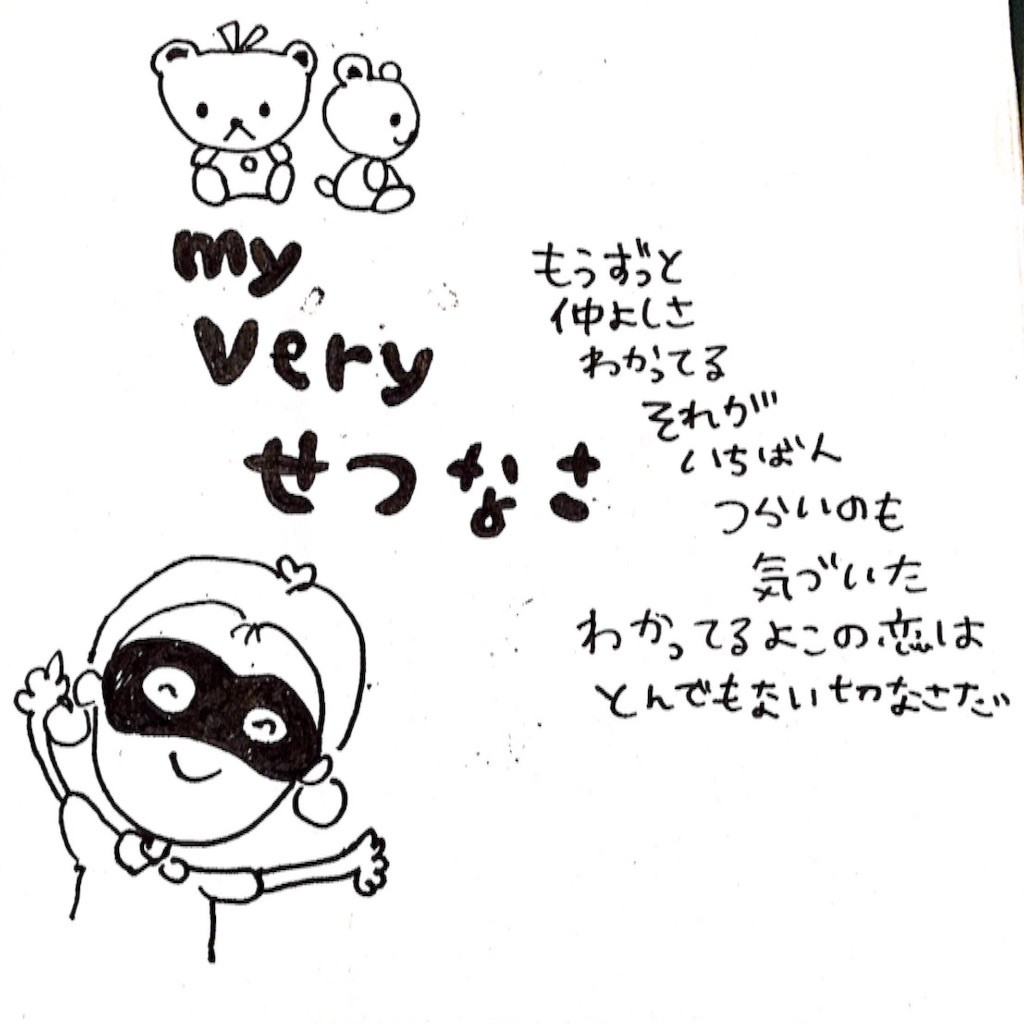 my
very
せつなさ
もうずっと
仲よしさ
わかってる
それが
いちばん
つらいのも
気づいた
わかってるよこの恋は
とんでもない切なさだ